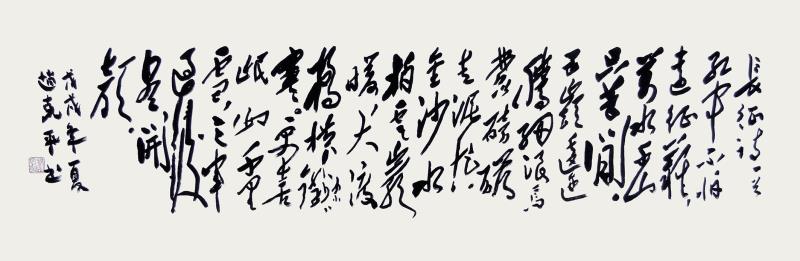 長征诗一首
红军不怕
远征难，
万水千山
只等闲。
五岭逶迤
腾细浪乌
蒙磅礴
走泥丸。
金沙水
拍云崖
暖大渡
桥横铁索
寒。更喜
岷山千里
雪，三军
过后
尽开
颜。
戊戌年夏
趙克平书